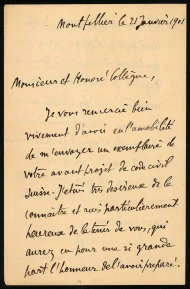 Montpellier le 21 Janvier 1901
Monsieur et Honoré Collègue,
Je vous remercie bien
vivement d'avoir eu l'amabilité
de m'envoyer un exemplaire de
votre avant projet de code civil
suisse. J'étais très désireux de le
connaître et suis particulièrement
heureux de le tenir de vous, qui
aurez eu pour une si grande
part l'honneur de l'avoir préparé.